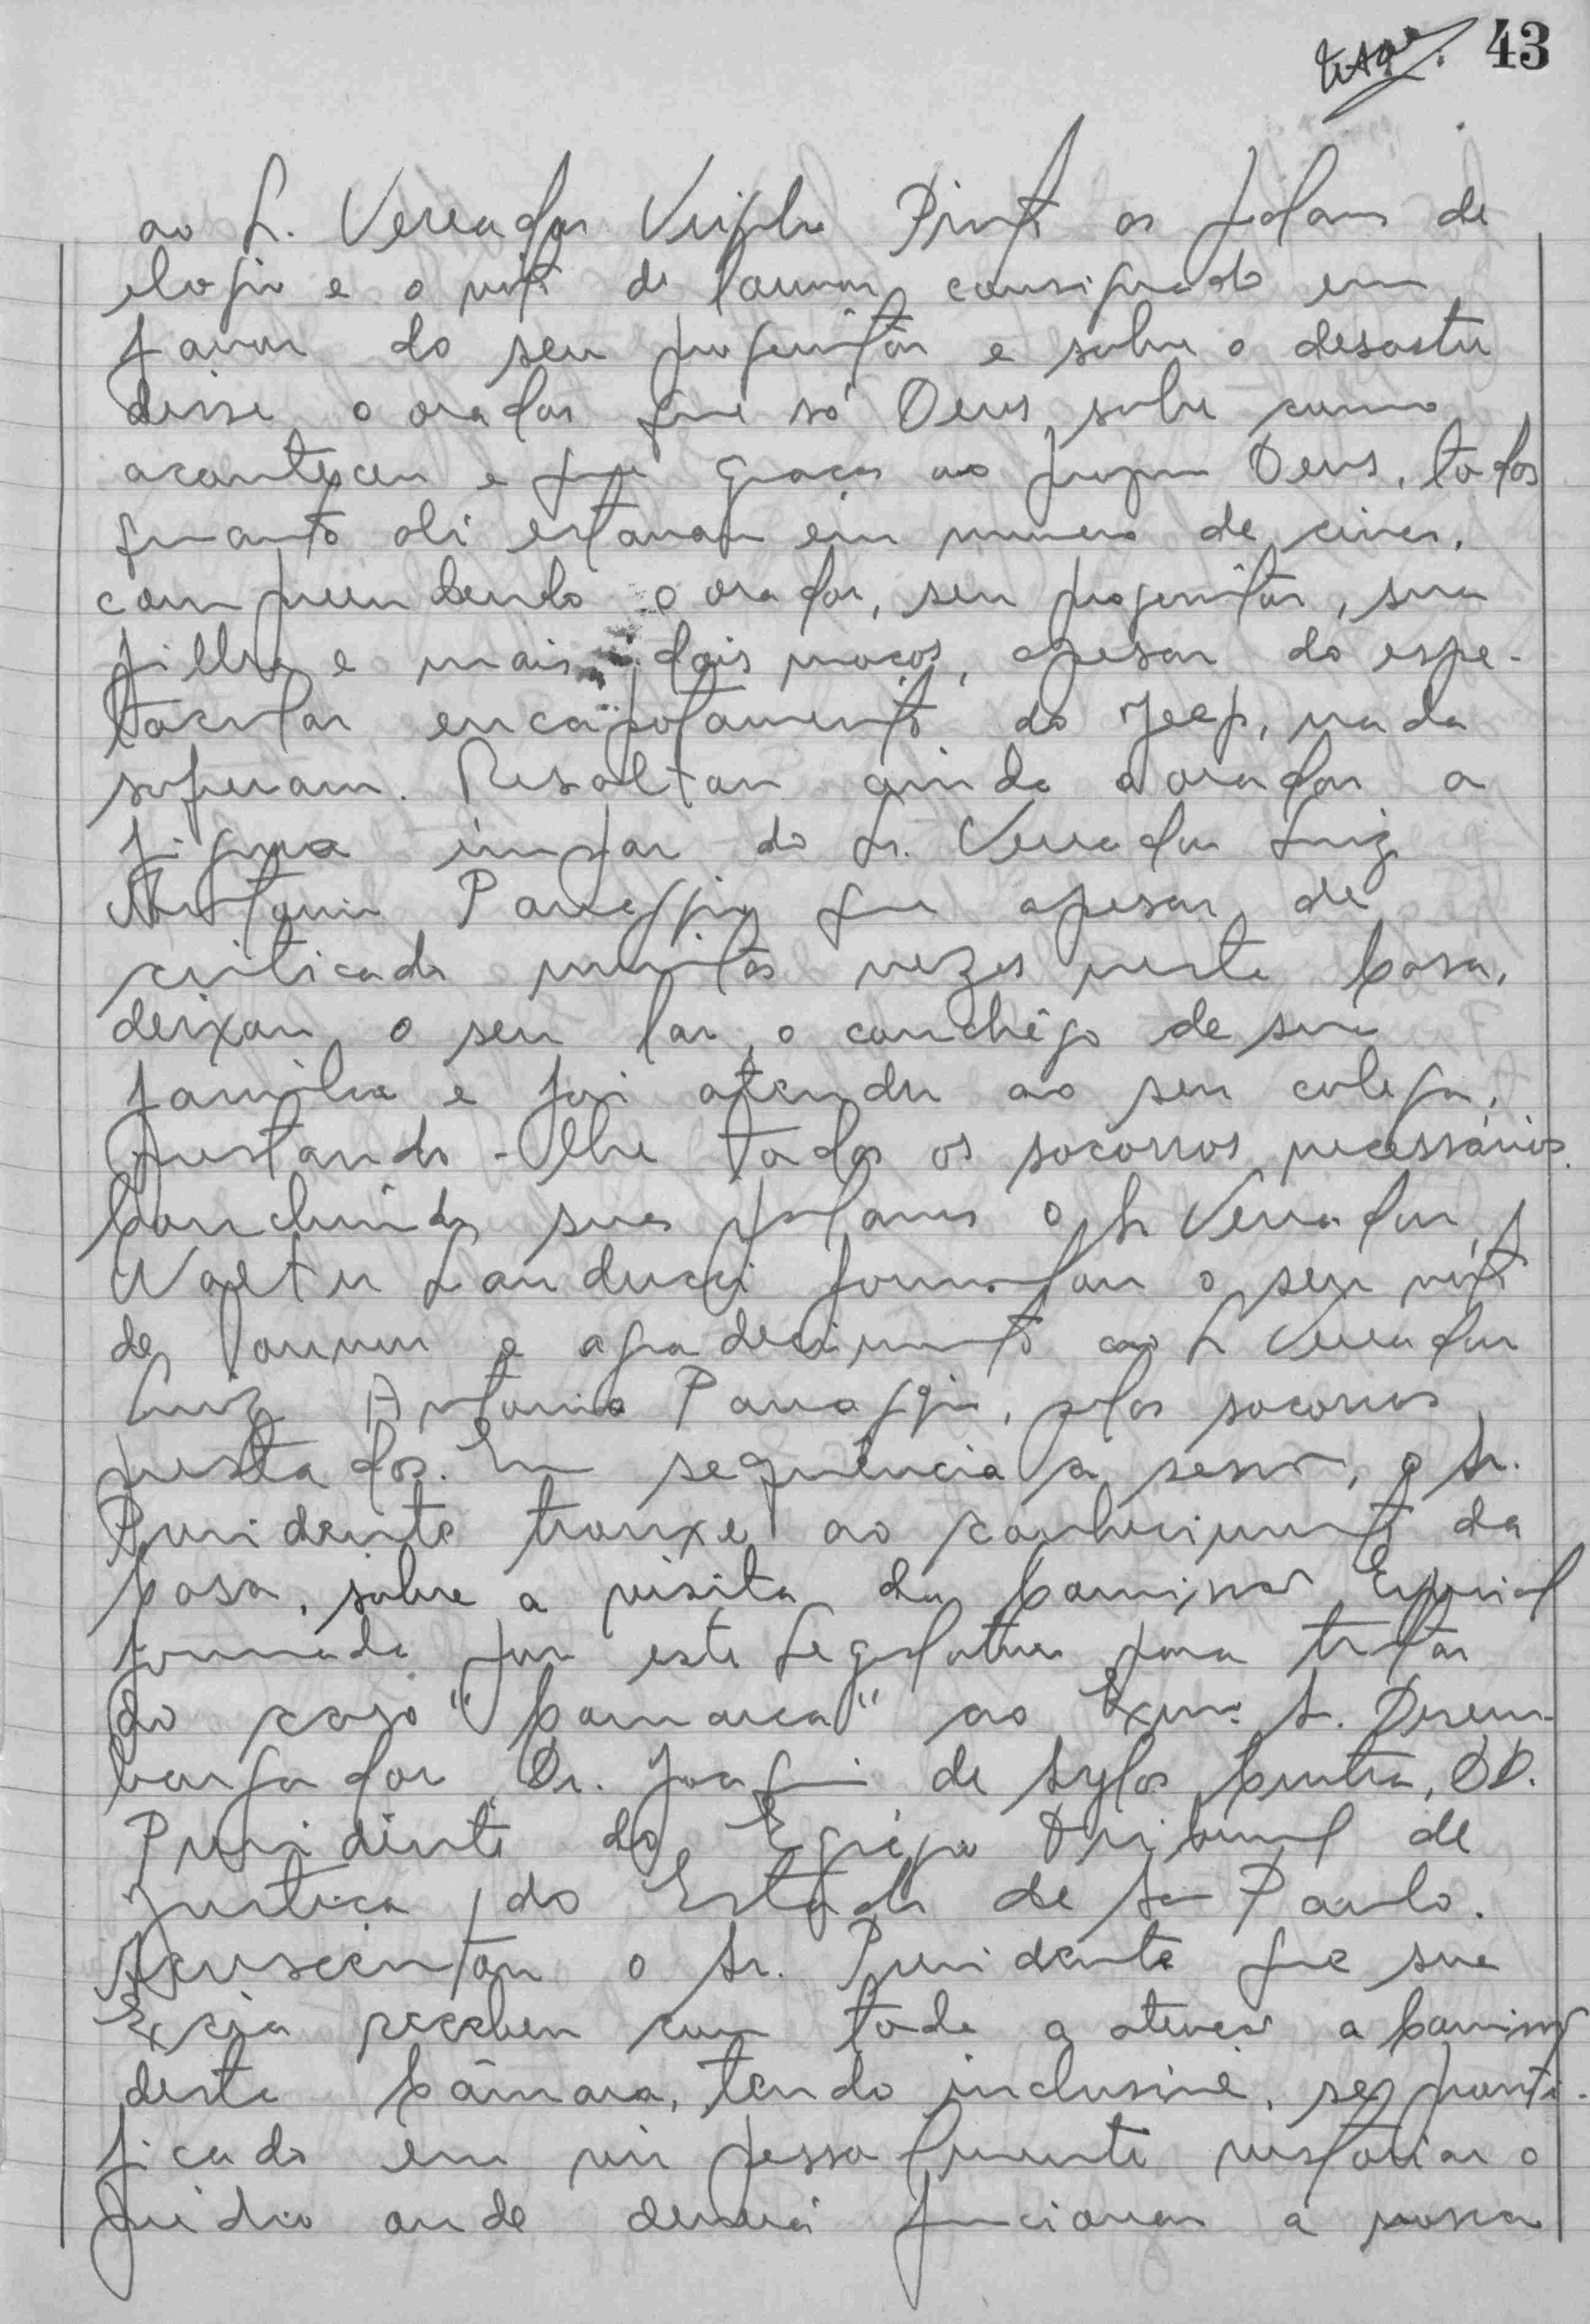 43
ao Sr. Vereador Virgilio Pinto as palavras de
elogio e o voto de louvor consignado em
favor do seu progenitor e sobre o desastre
disse o orador que só Deus sabe como
aconteceu e que graças ao proprio Deus, todos
quanto ali estavam em numero de cinco,
compreendendo o orador, seu progenitor, sua
filha e mais dois moços, apesar do espe-
tacular encapotamento do Jeep, nada
sofreram. Resaltou ainda o orador a
figura impar do Sr. Vereador Luiz
Antonio Panaggio que apesar de
criticado muitas vezes nesta Casa,
deixou o seu lar, o conchêgo de sua
familia e foi atender ao seu colega,
prestando-lhe todos os socorros necessários.
Concluindo suas palavras o Sr Vereador
Walter Landucci formulou o seu voto
de louvor e agradecimento ao Sr Vereador
Luiz Antonio Panaggio, pelos socorros
prestados. Em sequência a sessão, o Sr.
Presidente trouxe ao conhecimento da
Casa, sobre a visita da Comissão Especial
formada por esta Legislatura para tratar
do caso "Comarca" ao Exmo. Sr. Desem-
bargador Dr. Joaquim de Sylos Cintra, DD.
Presidente do Egrégio Tribunal de
Justiça do Estado de São Paulo.
Acrescentou o Sr. Presidente que sua
Excia recebeu com toda a atenção a Comissão
desta Câmara, tendo inclusive, se pronti-
ficado em vir pessoalmente vistoriar o
prédio onde deverá funcionar a nossa